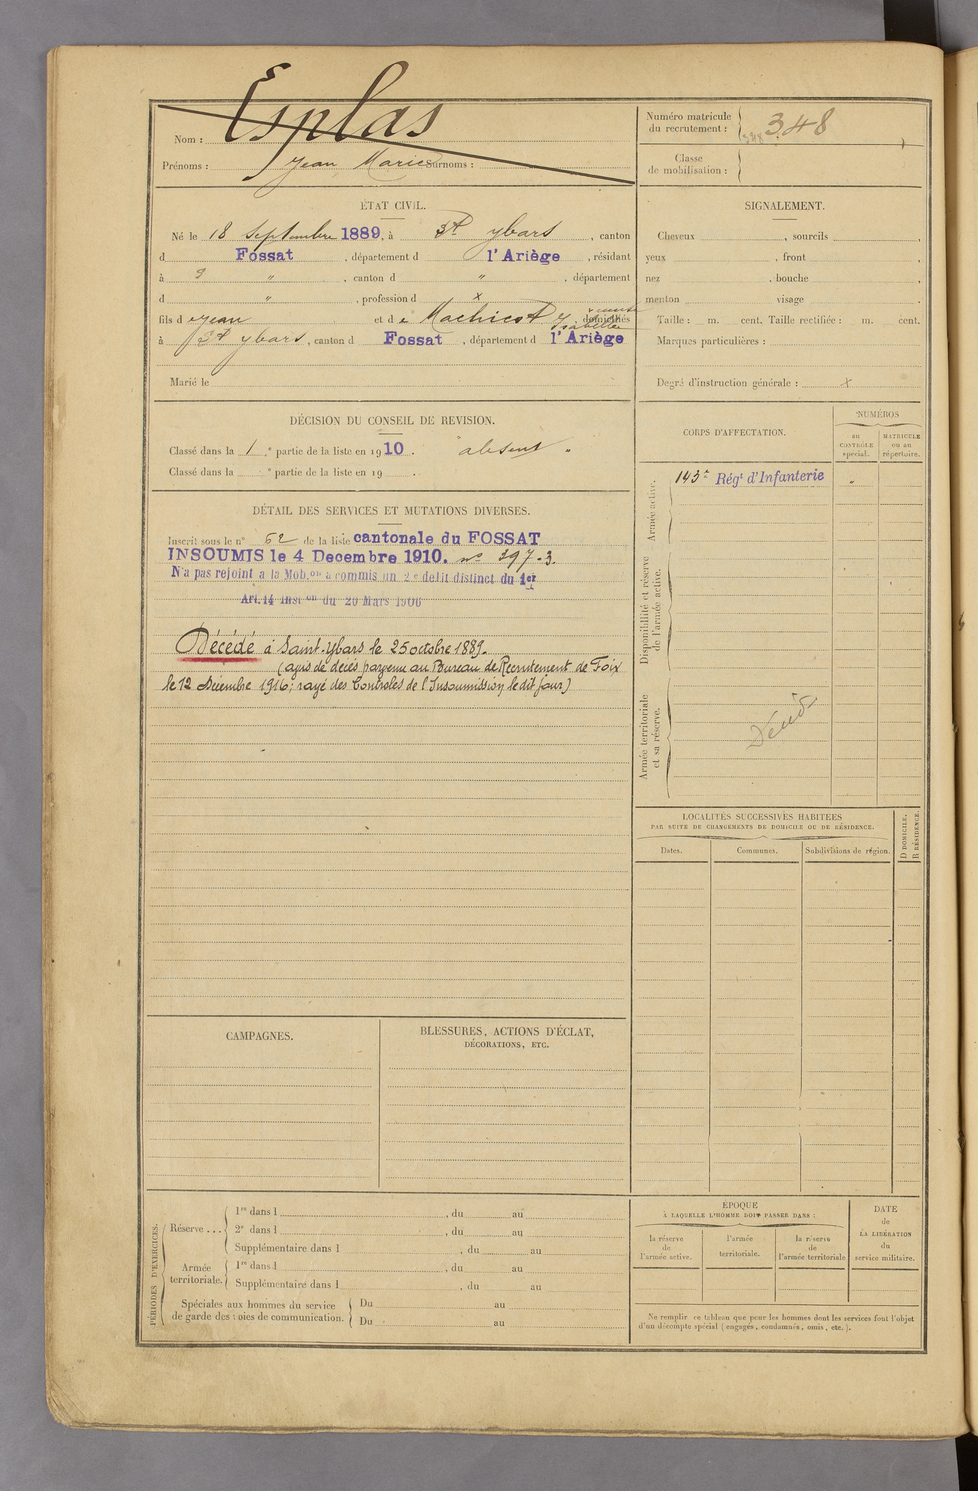 Nom : Esplas
Prénoms : Jean Marie Surnoms :
Numéro matricule
du recrutement : 348
348
Classe
de mobilisation :
ÉTAT CIVIL.
Né le 18 Septembre 1889, à St ybars, canton
d Fossat, département d l'Ariège, résidant
à ?, canton d ", département
d ", profession d x
fils d e Jean et d e Isabelle domiciliés
à St ybars, canton d Fossat, département d l'Ariège
Marié le
SIGNALEMENT.
Cheveux , sourcils ,
yeux , front ,
nez , bouche ,
menton visage .
Taille : m. cent. Taille rectifiée : m. cent.
Marques particulières :
Degré d'instruction générale : x
DÉCISION DU CONSEIL DE REVISION.
Classé dans la 1 re partie de la liste en 1910. " absent "
Classé dans la e partie de la liste en 19 .
CORPS D'AFFECTATION.
NUMÉROS
au
CONTRÔLE
spécial.
MATRICULE
ou au
répertoire.
Armée active.
143e Régt d'Infanterie "
Disponibilité et réserve
de l'armée active.
Armée territoriale
et sa réserve.
DÉTAIL DES SERVICES ET MUTATIONS DIVERSES.
Inscrit sous le n° 52 de la liste cantonale du FOSSAT
INSOUMIS le 4 Decembre 1910. n° 297-3.
N'a pas rejoint a la Mob.on a commis un 2e delit distinct du 1er
Art. 14 Inst on du 20 Mars 1906
Décédé à Saint-Ybars le 25 octobre 1889.
(avis de décès parvenu au Bureau de Recrutement de Foix
le 12 Décembre 1916; rayé des Controles de l'Insoumission le dit jour)
LOCALITÉS SUCCESSIVES HABITÉES
PAR SUITE DE CHANGEMENTS DE DOMICILE OU DE RÉSIDENCE.
Dates. Communes. Subdivisions de région.
D DOMICILE.
R RÉSIDENCE.
CAMPAGNES.
BLESSURES, ACTIONS D'ÉCLAT,
DÉCORATIONS, ETC.
PÉRIODES D'EXERCICES.
Réserve ...
1re dans l , du au
2e dans l , du au
Supplémentaire dans l , du au
Armée
territoriale.
1re dans l , du au
Supplémentaire dans l , du au
Spéciales aux hommes du service
de garde des voies de communication.
Du au
Du au
ÉPOQUE
À LAQUELLE L'HOMME DOIT PASSER DANS :
la réserve
de
l'armée active.
l'armée
territoriale.
la réserve
de
l'armée territoriale
DATE
de
LA LIBÉRATION
du
service militaire.
Ne remplir ce tableau que pour les hommes dont les services font l'objet
d'un décompte spécial (engagés, condamnés, omis, etc.).